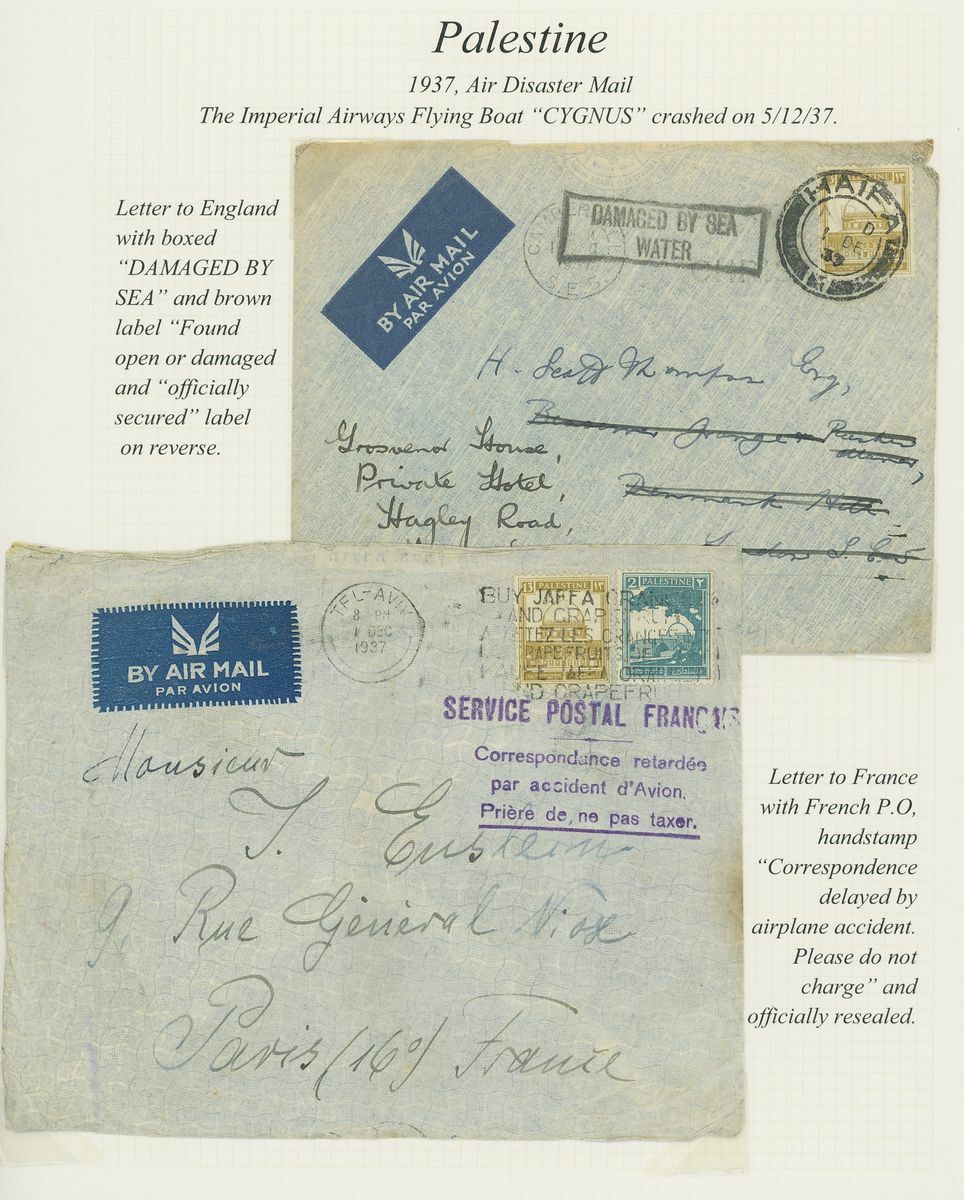 Palestine
1937, Air Disaster Mail
The Imperial Airways Flying Boat “CYGNUS” crashed on 5/12/37.
Letter to England
with boxed
“DAMAGED BY
SEA” and brown
label “Found
open or damaged
and “officially
secured” label
on reverse.
BY AIR MAIL
PAR AVION
CAMBER
S.E.5
DAMAGED BY SEA
WATER
PALESTINE
HAIFA
1 DE
37
H. Scott Thompson Esq,
Grange
Denmark Hill
London S.E.5
Grosvenor House,
Private Hotel,
Hagley Road,
BY AIR MAIL
PAR AVION
TEL-AVIV
8 PM
1 DEC
1937
13 PALESTINE ١٣
2 PALESTINE ٢
BUY JAFFA ORANGES
AND GRAPEFRUIT
ACHETEZ LES ORANGES
GRAPEFRUITS DE
AND GRAPEFRUIT
SERVICE POSTAL FRANÇAIS
Correspondance retardée
par accident d'Avion.
Prière de ne pas taxer.
Monsieur
J. Einstein
9, Rue Général Niox
Paris (16e) France
Letter to France
with French P.O,
handstamp
“Correspondence
delayed by
airplane accident.
Please do not
charge” and
officially resealed.